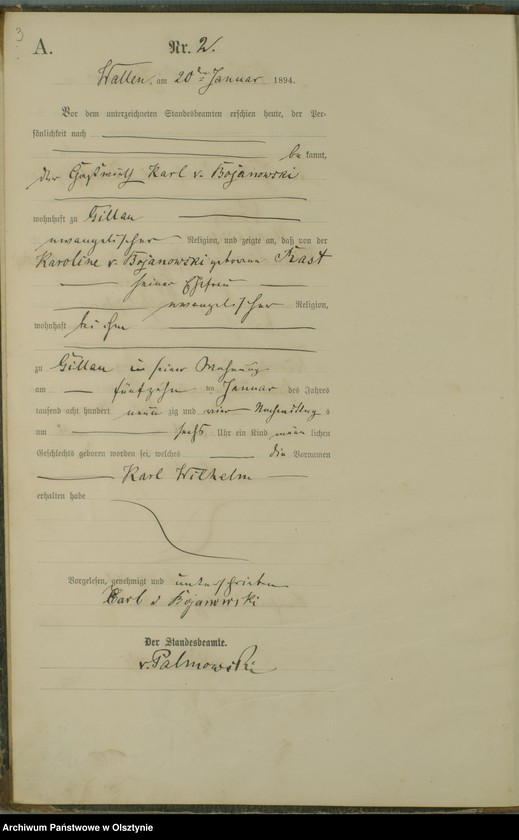 3
A. Nr. 2.
Wallen, am 20ten Januar 1894.
Vor dem unterzeichneten Standesbeamten erschien heute, der Per-
sönlichkeit nach
be kannt,
der Gastwirth Karl v. Bojanowski
wohnhaft zu Gillau
evangelischer Religion, und zeigte an, daß von der
Karoline v Bojanowski geborenen Kast
seiner Ehefrau
evangelischer Religion,
wohnhaft bei ihm
zu Gillau in seiner Wohnung
am fünfzehn ten Januar des Jahres
tausend acht hundert neun zig und vier Nachmittag s
um sechs Uhr ein Kind männ lichen
Geschlechts geboren worden sei, welches die Vornamen
Karl Wilhelm
erhalten habe
Vorgelesen, genehmigt und unterschrieben
Karl v Bojanowski
Der Standesbeamte.
v. Palmowski
Archiwum Państwowe w Olsztynie